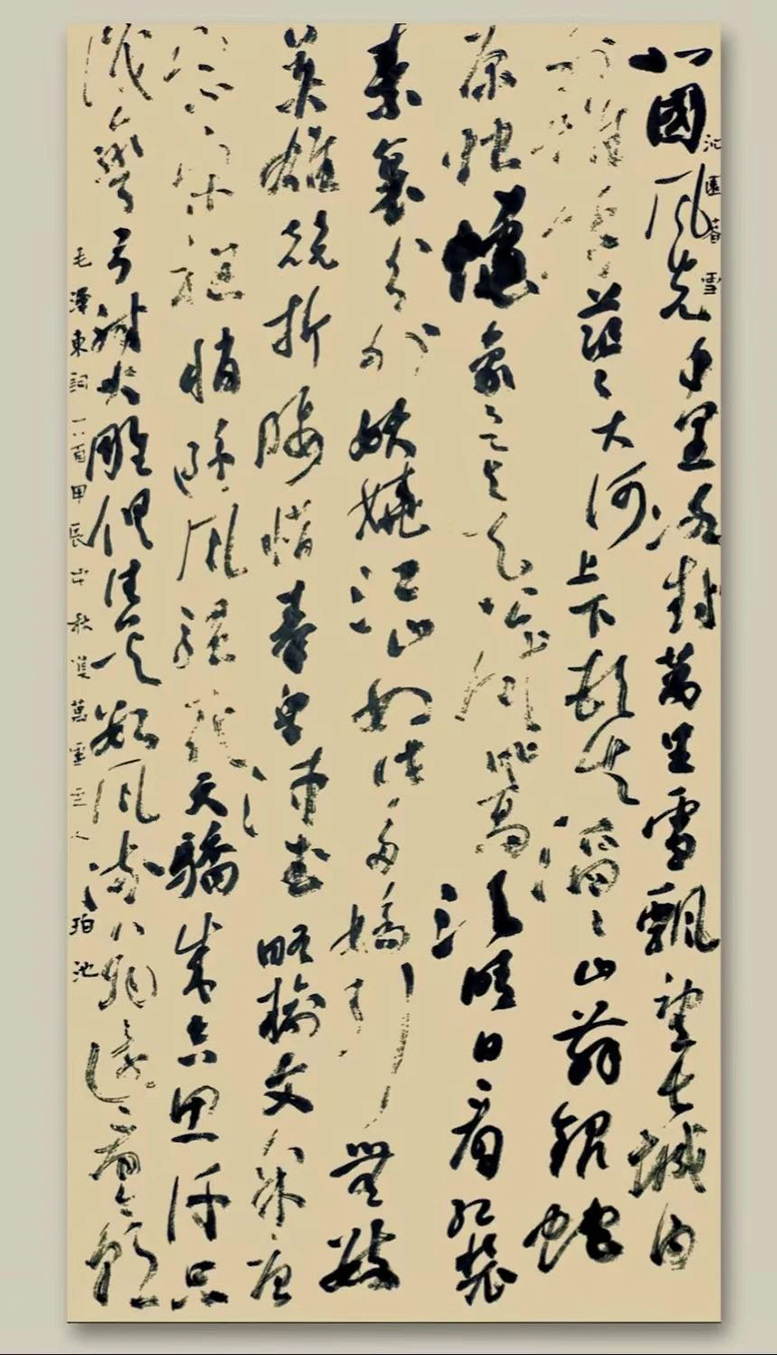 沁園春 雪
北國風光千里冰封萬里雪飄望長城內
外惟餘莽莽大河上下頓失滔滔山舞銀蛇
原馳蠟象欲與天公試比高須晴日看紅裝
素裹分外妖嬈江山如此多嬌引無數
英雄競折腰惜秦皇漢武略輸文采唐
宗宋祖稍遜風騷一代天驕成吉思汗只
識彎弓射大雕俱往矣數風流人物還看今朝
毛澤東詞一首甲辰中秋 珀池